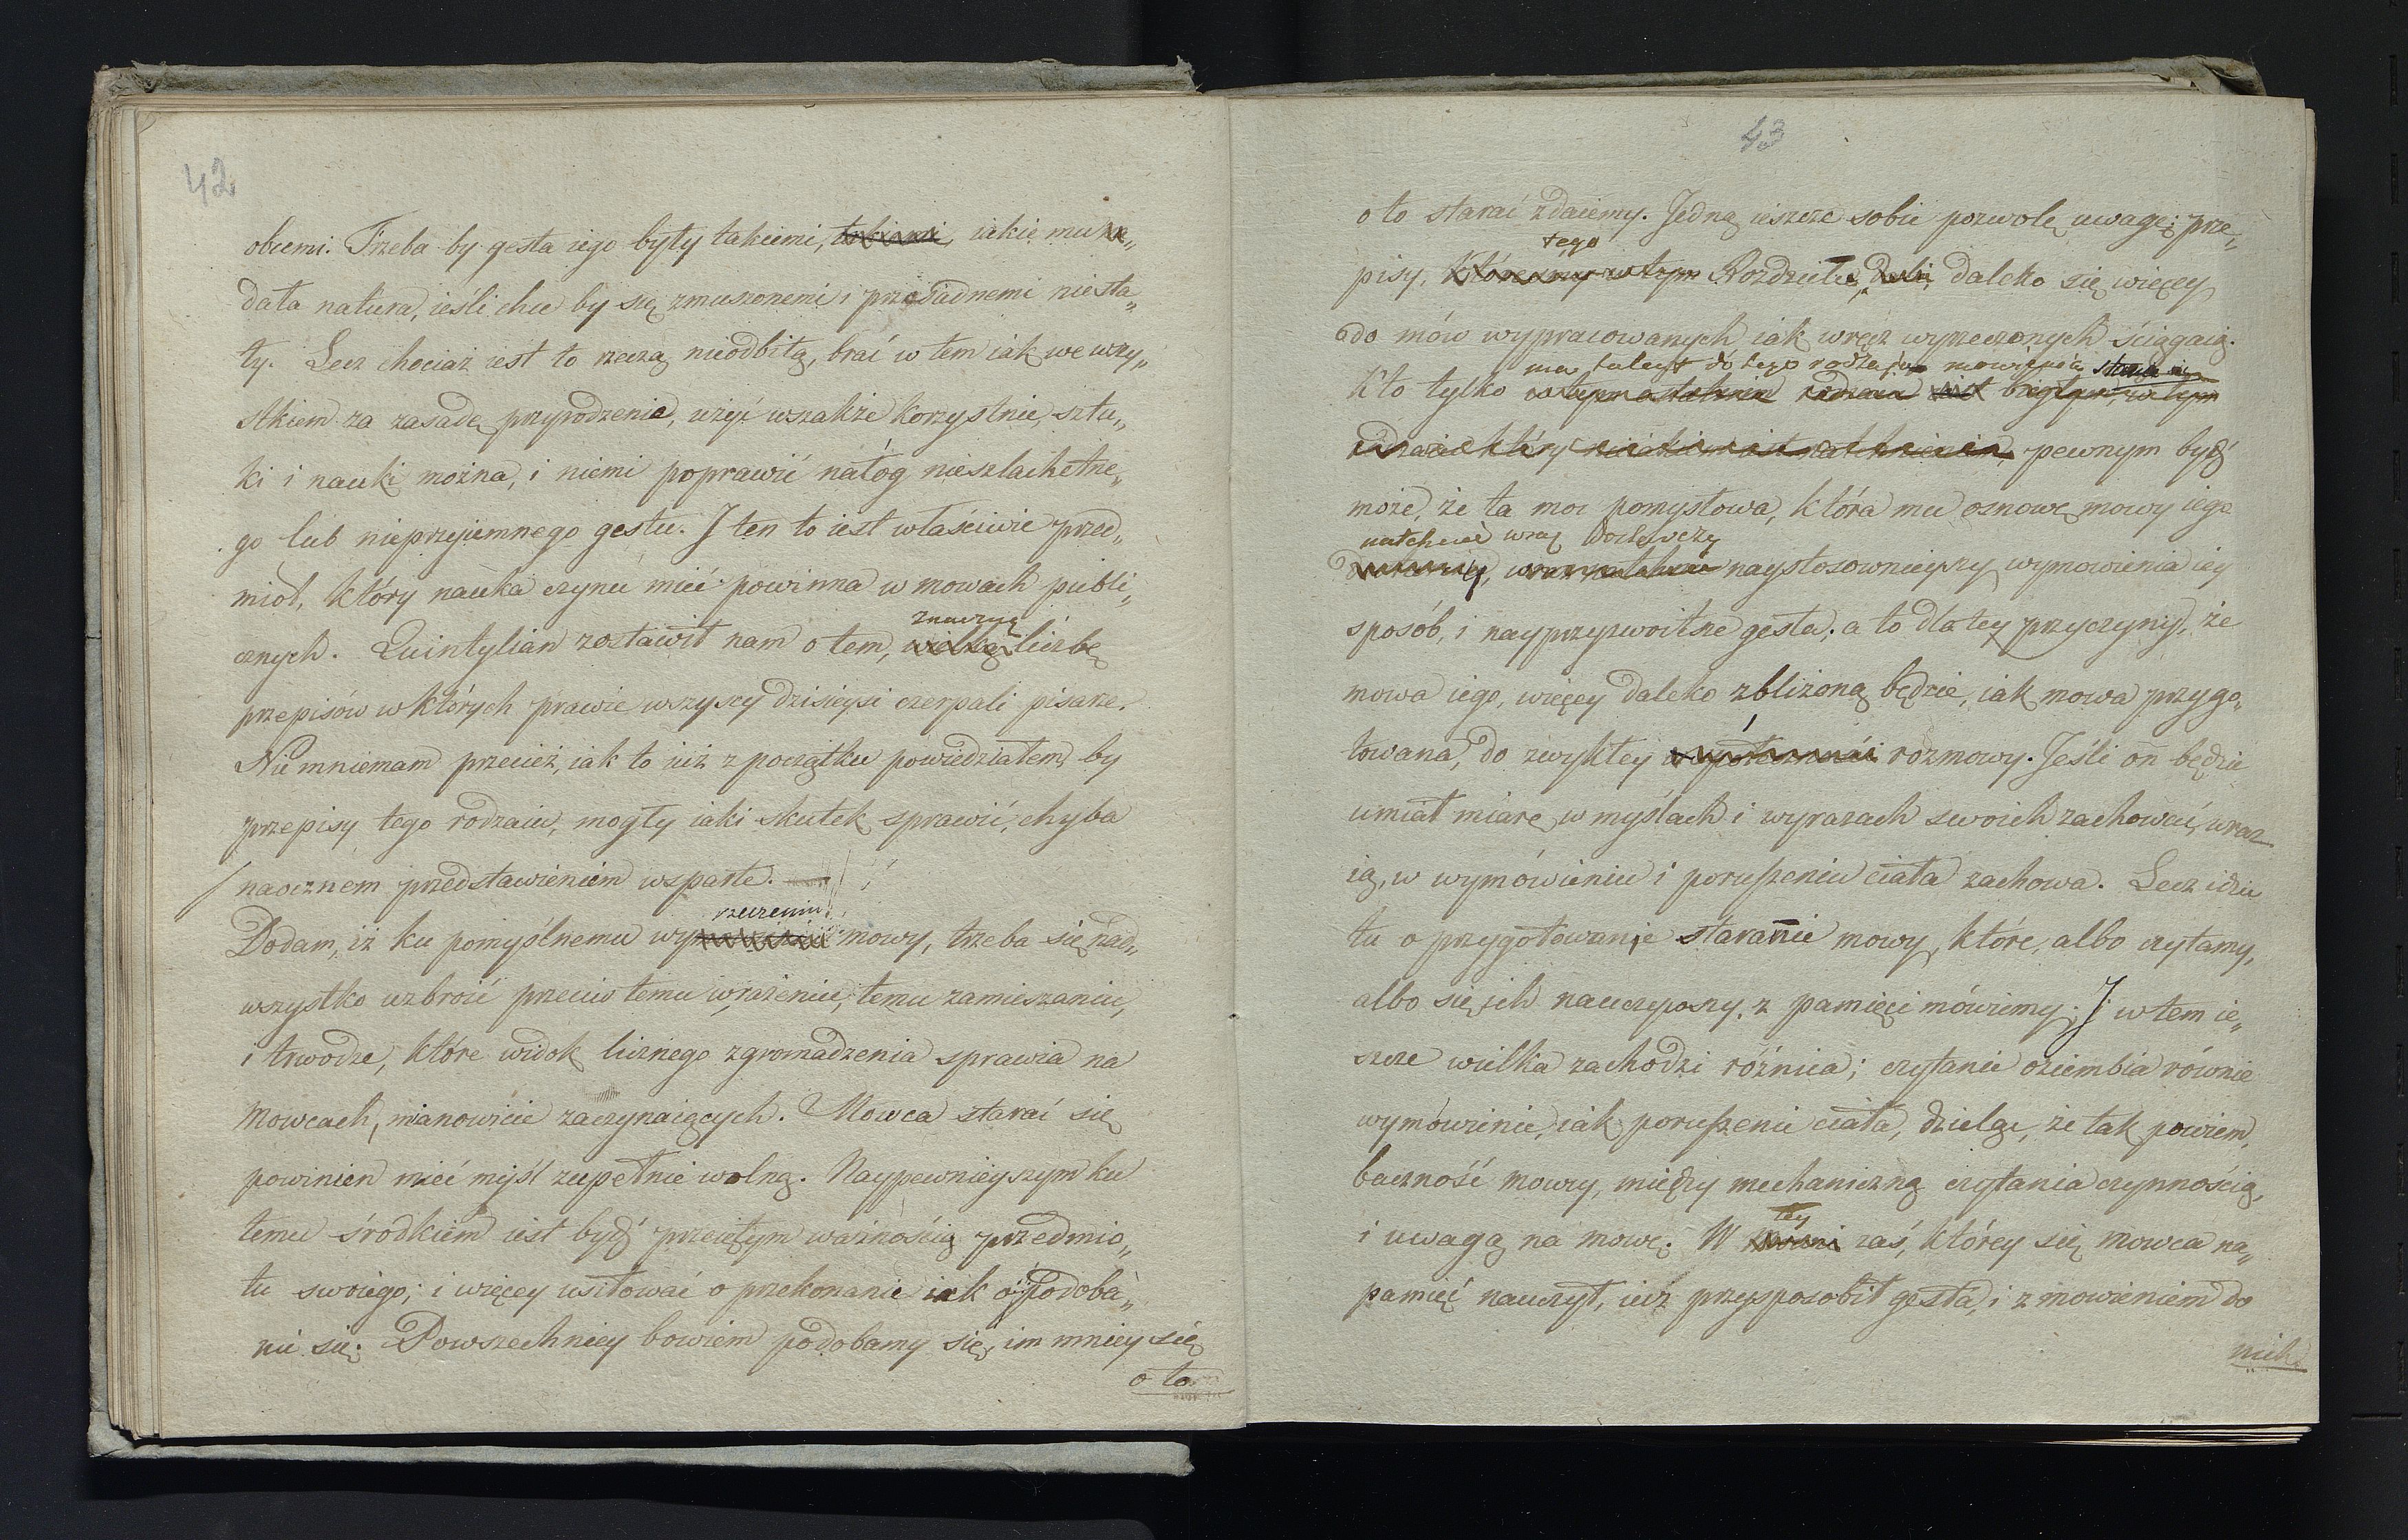 42
obcemi. Trzeba by gesta iego były takiemi, takiemi, iakie mu na„
dała natura, ieśli chce by się zmuszonemi i przesadnemi niesta„
ły. Lecz chociaż iest to rzeczą nieodbitą, brać w tem iak we wszy„
stkiem za zasadę przyrodzenie, użyć wszakże korzystnie, sztu„
ki i nauki można, i niemi poprawić nałóg nieszlachetne„
go lub nieprzyiemnego gestu. I ten to iest właściwie przed„
miot, który nauka czynu mieć powinna w mowach publi„
znaczną
cznych. Quintylian zostawił nam o tem, wielką liczbę
przepisów w których prawie wszyscy dzisieysi czerpali pisarze.
Nie mniemam przecież, iak to iuż z początku powiedziałem, by
przepisy tego rodzaiu, mogły iaki skutek sprawić, chyba
naocznem przedstawieniem wsparte.
rzeczeniu
Dodam, iż ku pomyślnemu wymówieniu mowy, trzeba się nad„
wszystko uzbroić przeciw temu wrażeniu, temu zamieszaniu,
i trwodze, które widok licznego zgromadzenia sprawia na
Mowcach, mianowicie zaczynaiących. Mowca starać się
powinien mieć myśl zupełnie wolną. Naypewnieyszym ku
temu środkiem iest być przeiętym ważnością przedmio„
tu swoiego; i więcey usiłować o przekonanie iak o podoba„
nie się. Powszechniey bowiem podobamy się, im mniey się
o to
43
o to starać zdaiemy. Jedną ieszcze sobie pozwolę uwagę; prze„
tego
pisy, któreśmy w tym Rozdziale, dali, daleko się więcey
do mów wypracowanych iak wręcz wyrzeczonych ściągaią.
ma talent do tego rodzaju mowienia
Kto tylko w tym ostatnim rodzaiu iest biegłym, w tym
rodzaiu który iest natchnieniem, pewnym być
może, że ta moc pomysłowa, która mu osnowę mowy iego
natchnie wraz
wraz natchnie naystosownieyszy wymowienia iey
sposób, i nayprzyzwoitsze gesta; a to dla tey przyczyny, że
mowa iego, więcey daleko zbliżoną będzie, iak mowa przygo„
towana, do zwykłey rozmowy. Jeśli on będzie
umiał miarę w myślach i wyrazach swoich zachować, wraz
ią, w wymówieniu i poruszeniu ciała zachowa. Lecz idzie
tu o przygotowanie starannie mowy, które, albo czytamy,
albo się ich nauczywszy, z pamięci mówimy. I w tem ie„
szcze wielka zachodzi różnica; czytanie oziembia równie
wymówienie, iak poruszenie ciała, dzieląc, że tak powiem,
baczność mowcy, między mechaniczną czytania czynnością,
i uwagą na mowę. W
tey
zaś, którey się mowca na„
pamięć nauczył, iuż przysposobił gesta, i z mowieniem do
nich